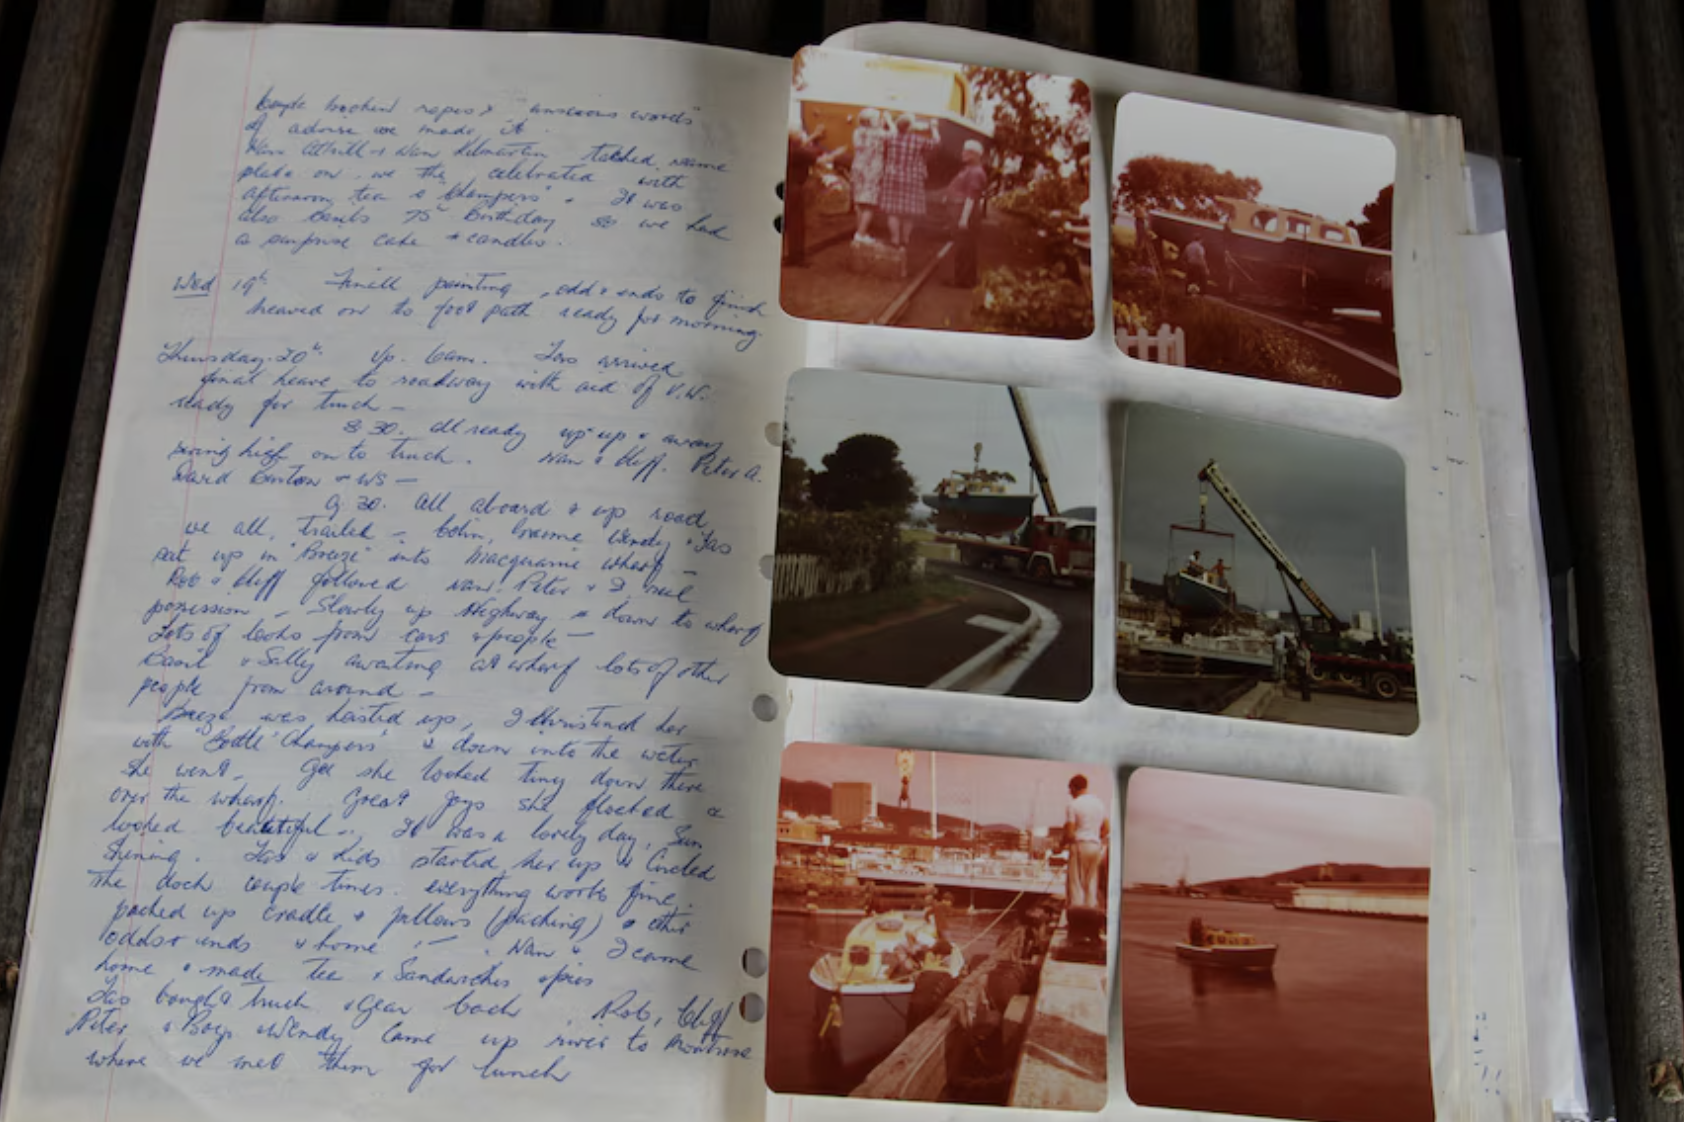 couple broken ropes & "anxious words"
of advise we made it.
Nan & Nan tacked name
plate on. we the celebrated with
afternoon tea & "Champers". It was
also Basils 75th Birthday so we had
a surprise cake & candles.
Wed 19th. Finill painting, odd & ends to finish
heaved on to foot path ready for morning.
Thursday. 20th. Up. 6am. Tas arrived
final heave to roadway with aid of V.W.
ready for truck -
8.30. all ready up up & away
swing high on to truck. Nan & Cliff. Peter A.
David Burton & WS -
9.30. All aboard & up road
we all, trailed - Colin, Graeme Wendy & Tas
sat up in "Breeze" into Macquarie wharf -
Rob & Cliff followed Nan! Peter & I real
possession - Slowly up Highway & down to wharf
Lots of looks from cars & people -
Basil & Sally awaiting at wharf lots of other
people from around -
Breeze was hoisted up, I christened her
with "Bottle 'Champers' & down into the water
she went - Gee she looked tiny down there
over the wharf. Great joys she floated &
looked beautiful - It was a lovely day, Sun
shining. Tas & kids started her up & Circled
the dock couple times. everything works fine.
packed up cradle & pillows (packing) & other
odds & ends & home! - Nan & I came
home & made tea & Sandwiches & pies
Tas bought truck & gear back Rob, Cliff
Peter & Boys & Wendy came up river to Montrose
where we met them for lunch